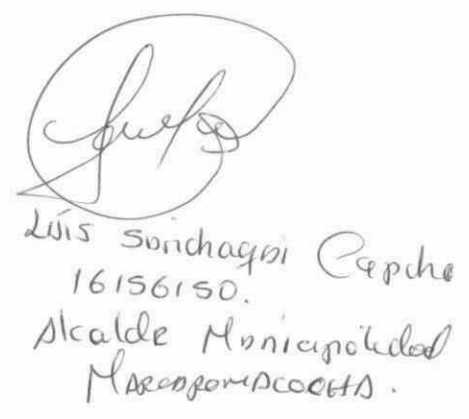 Luis Surichaqui Capcha
16156150.
Alcalde Municipalidad
MARCAPOMACOCHA.